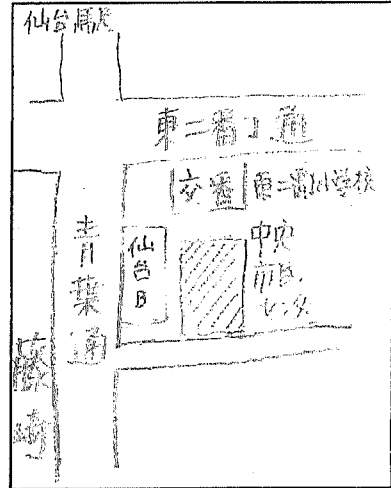 仙台駅
東二番丁通
交番
東二番丁小学校
青葉通
仙台B
中央
市民
センター
藤崎